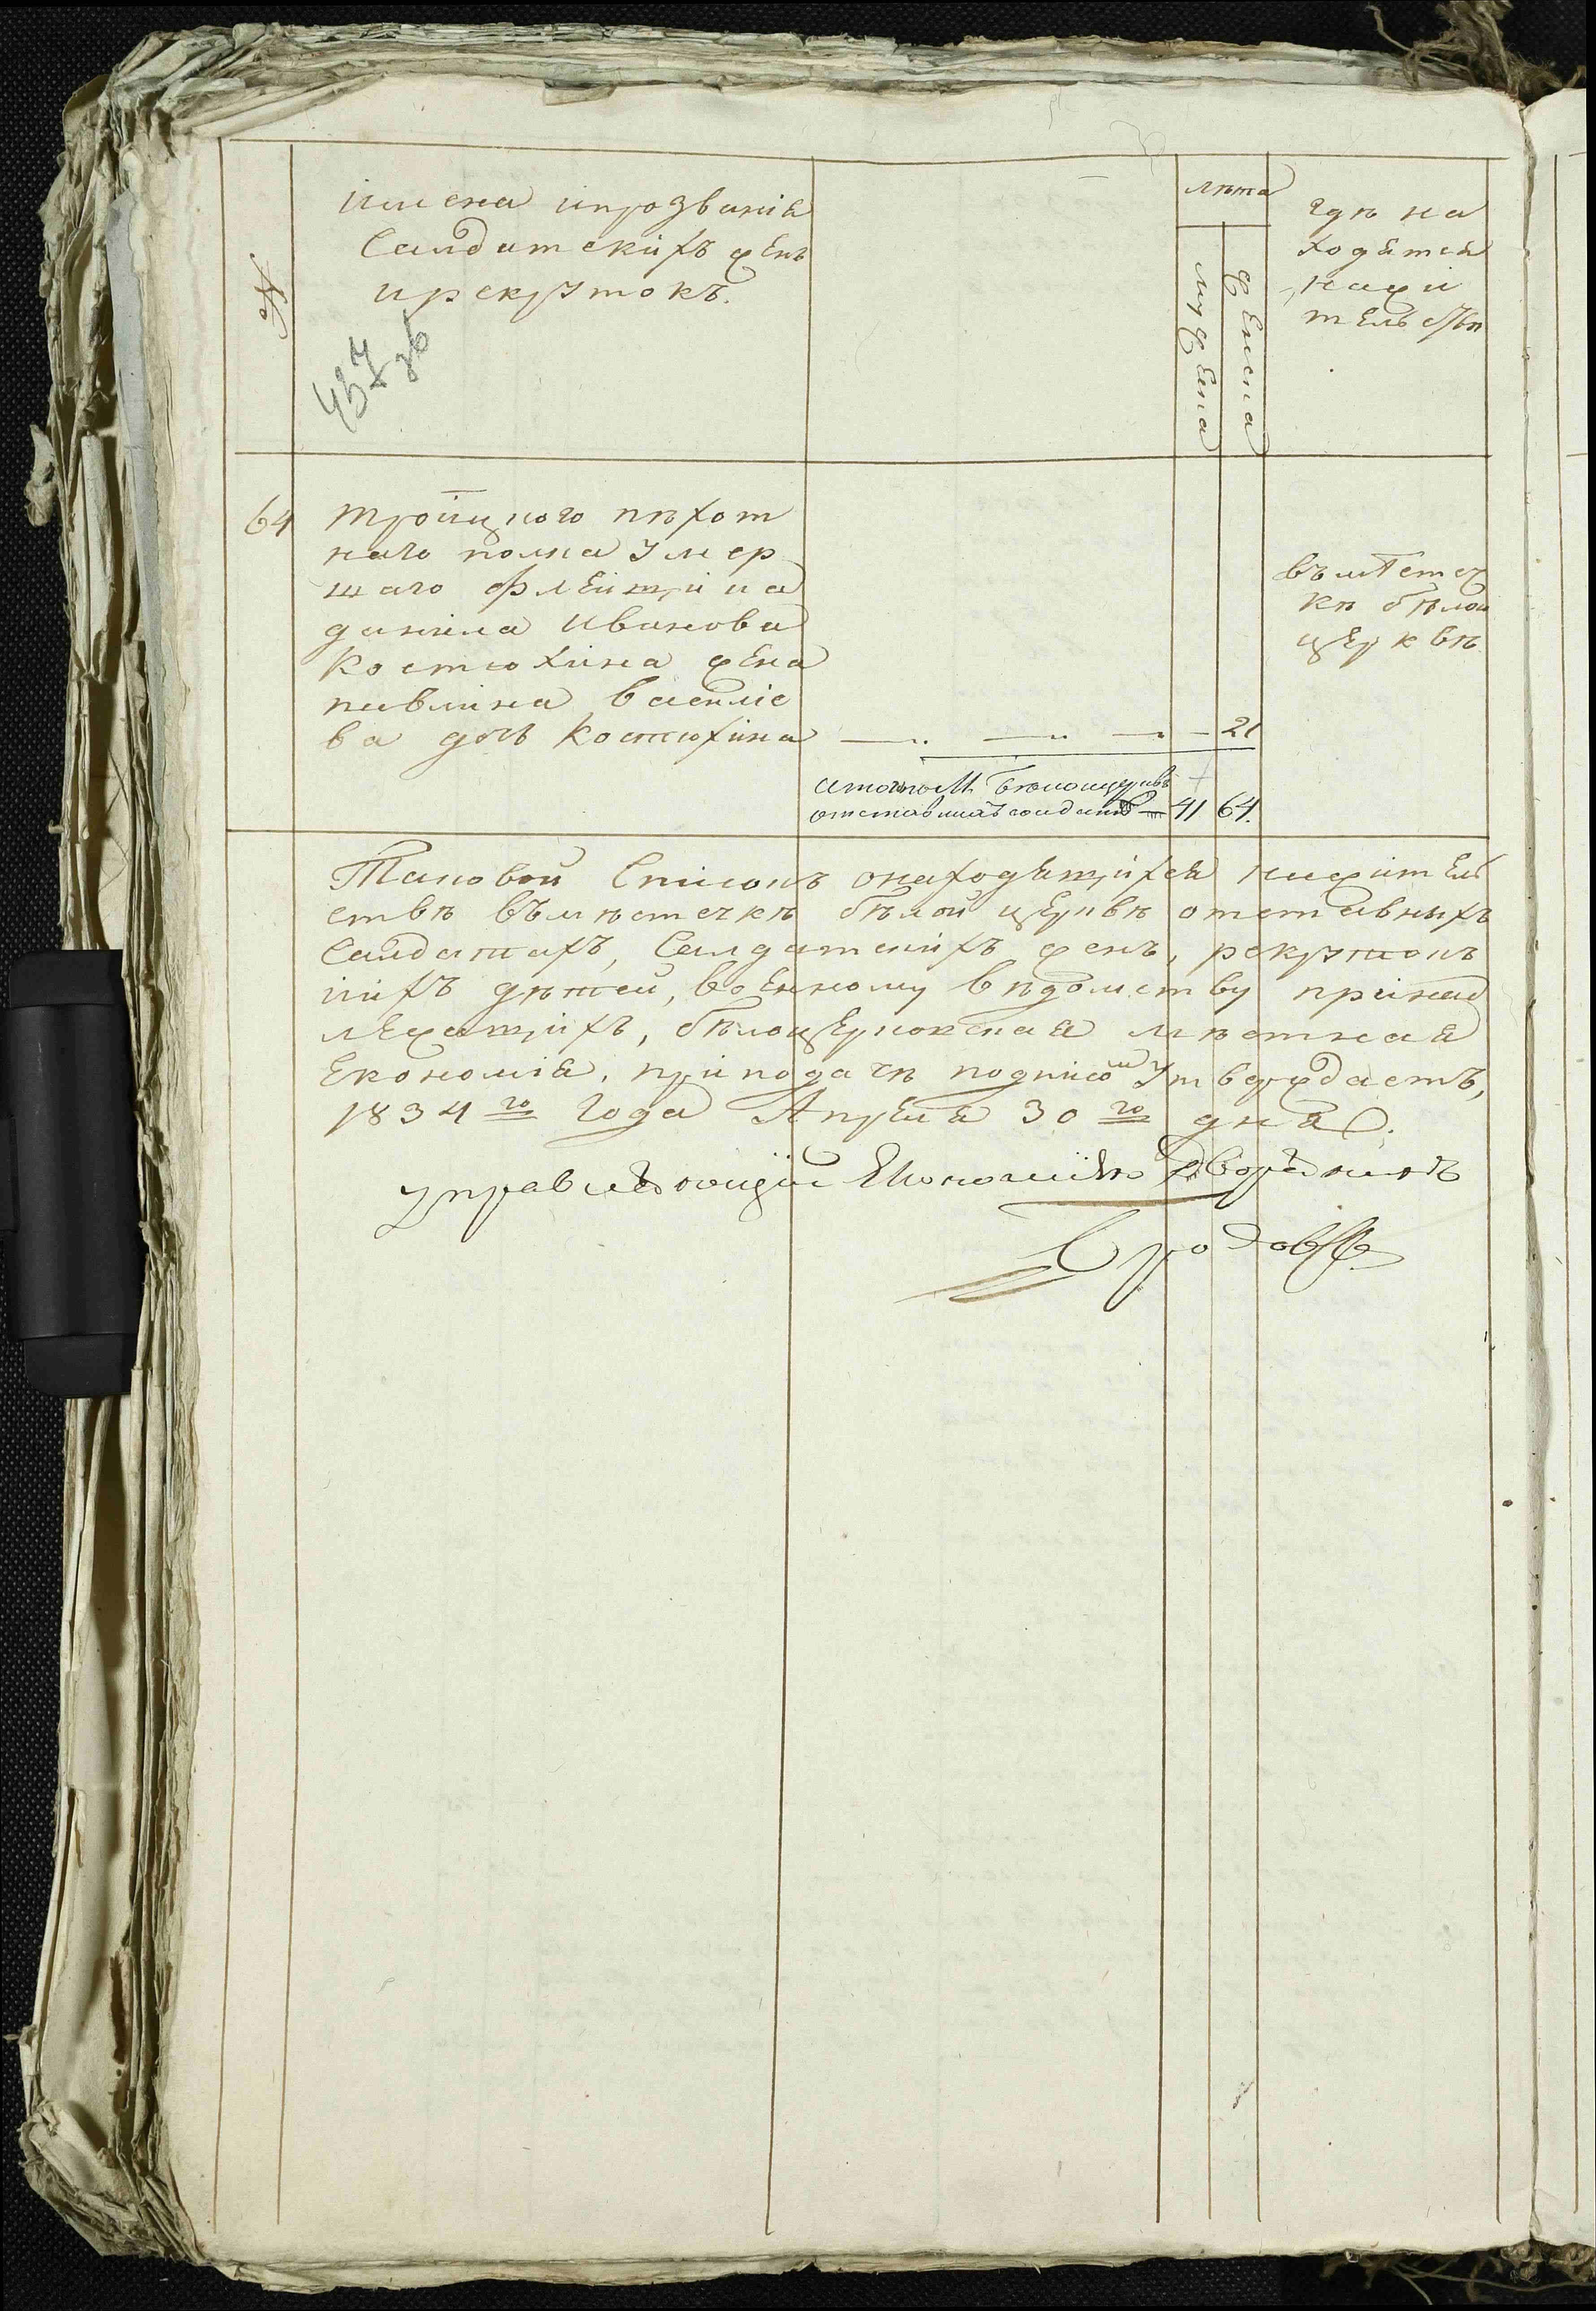 №
имена ипрозванія
Салдатскихъ женъ
ирекрутокъ.
437
об
лѣта
мужеска
женска
гдѣ на
ходятся
нажи
тельствѣ
64
Троицкого пѣхот
наго полка умер
шаго флейщика
данила Иванова
Костюхина жена
павлина василіе
ва дочь Костюхина — — — — 21
въ местеч
кѣ бѣлой
церквѣ
итого по М. Бѣлоцерквѣ
отставныхъ солдатъ — 41 64.
Таковой Списокъ онаходящихся нажитель
ствѣ въмѣстечкѣ бѣлой церквѣ отставныхъ
Салдатахъ, Салдатскихъ женъ, рекрутокъ
иихъ дѣтей, военному вѣдомству принад
лежащихъ, бѣлоцерковская мѣстная
Економія, приподачѣ подписомъ утверждаетъ,
1834го Года Апреля 30го дня.
управляющій Економіею Дворянинъ